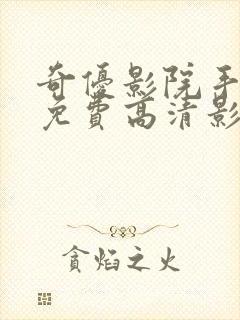 奇優影院手
免費高清影
貪焰之火